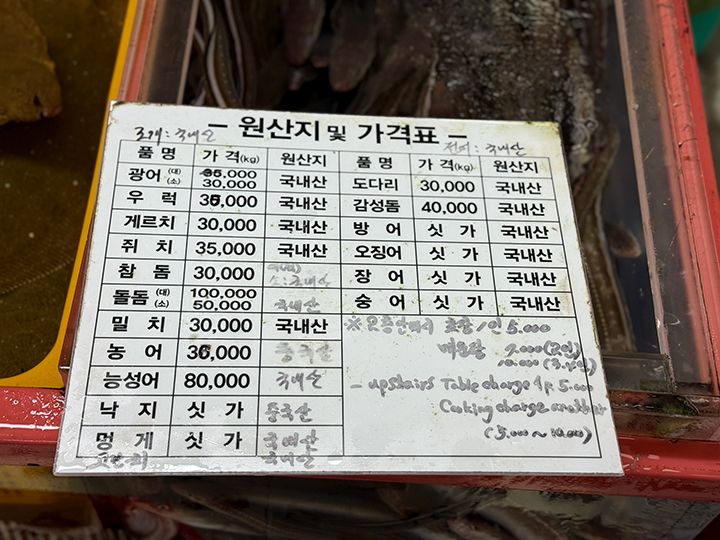 - 원산지 및 가격표 -
조개: 국내산
전복: 국내산
품 명 가 격(kg) 원산지
광어 (대) 35.000 국내산
(소) 30.000
우 럭 35,000 국내산
게르치 30,000 국내산
쥐 치 35,000 국내산
참 돔 30,000
소: 국내산
돌돔 (대) 100.000 국내산
(소) 50.000
밀 치 30,000 국내산
농 어 30,000 중국산
능성어 80,000 국내산
낙 지 싯 가 중국산
멍 게 싯 가 국내산
국내산
품 명 가 격(kg) 원산지
도다리 30,000 국내산
감성돔 40,000 국내산
방 어 싯 가 국내산
오징어 싯 가 국내산
장 어 싯 가 국내산
숭 어 싯 가 국내산
※ 초장/인 5.000
매운탕 7.000(2인)
10.000(3.4인)
- upstairs Table charge 1p 5.000
Cooking charge another
(5.000~10.000)